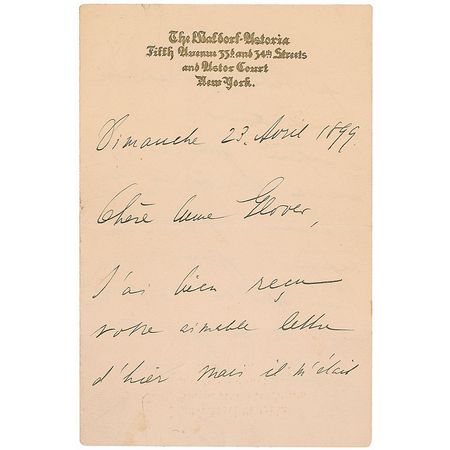 The Waldorf-Astoria
Fifth Avenue 33d and 34th Streets
and Astor Court
New York.
Dimanche 23 Avril 1899
Chère Mme Glover,
J'ai bien reçu
votre aimable lettre
d'hier mais il m'était